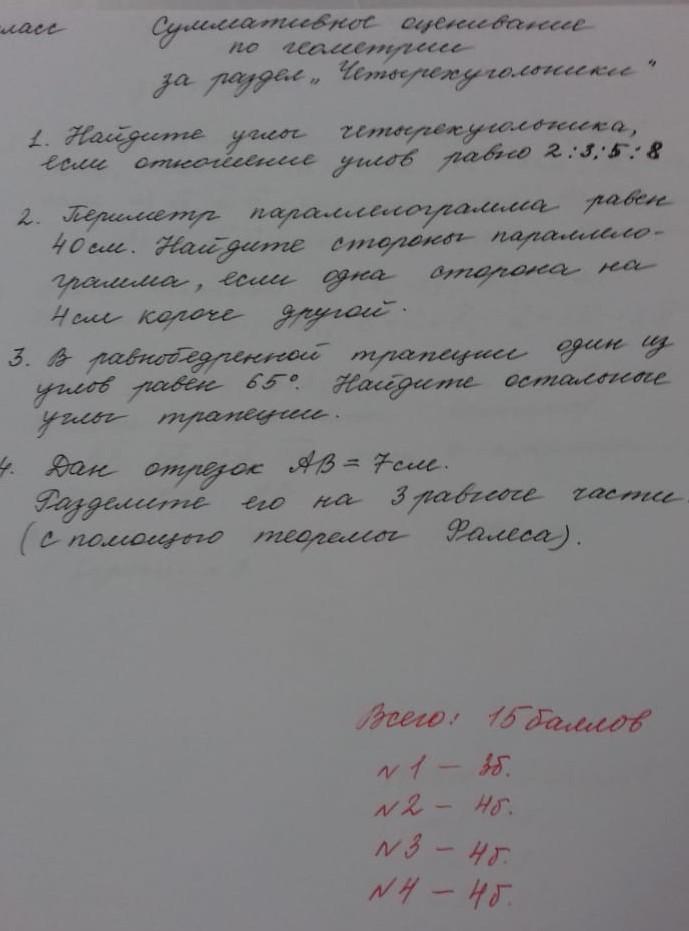 ласс Суммативное оценивание
по геометрии
за раздел „Четырехугольники"
1. Найдите углы четырехугольника,
если отношение углов равно 2:3:5:8
2. Периметр параллелограмма равен
40 см. Найдите стороны параллело-
грамма, если одна сторона на
4 см короче другой.
3. В равнобедренной трапеции один из
углов равен 65°. Найдите остальные
углы трапеции.
4. Дан отрезок AB = 7 см.
Разделите его на 3 равные части
(с помощью теоремы Фалеса).
Всего: 15 баллов
N1 – 3б.
N2 – 4б.
N3 – 4б.
N4 – 4б.